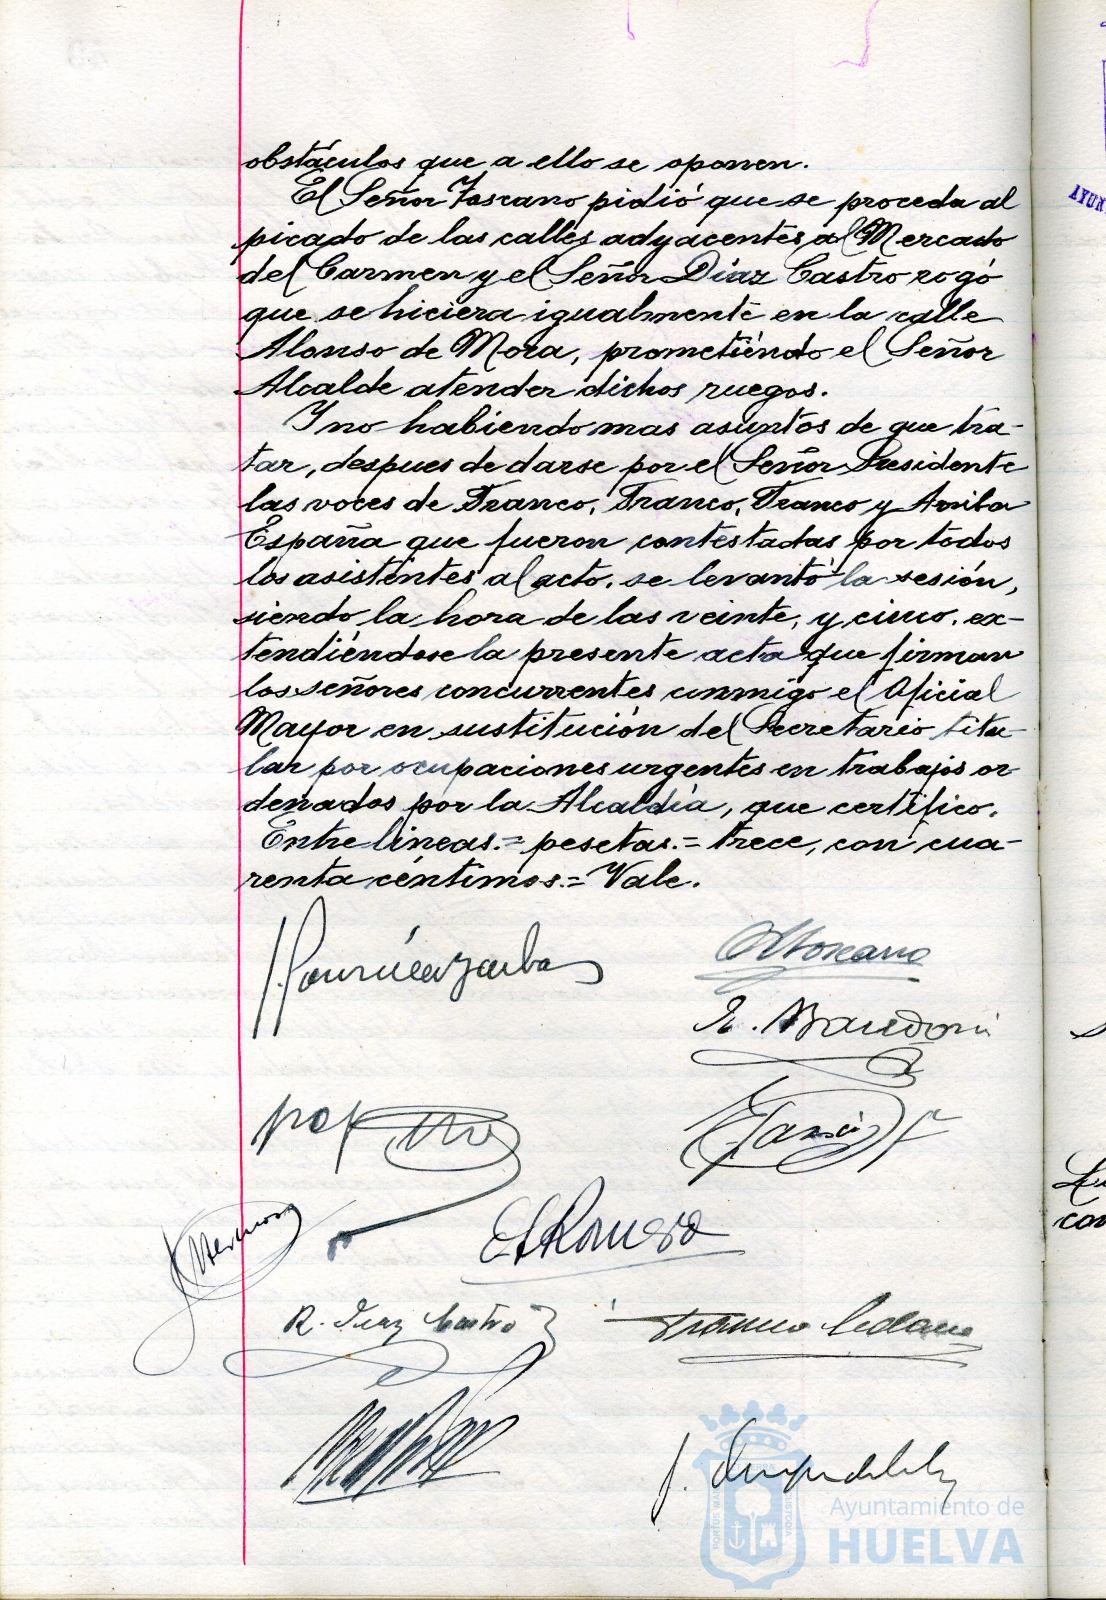 obstáculos que a ello se oponen.
El Señor Toscano pidió que se proceda al
picado de las calles adyacentes al Mercado
del Carmen y el Señor Díaz Castro rogó
que se hiciera igualmente en la calle
Alonso de Mora, prometiendo el Señor
Alcalde atender dichos ruegos.
Y no habiendo mas asuntos de que tra-
tar, despues de darse por el Señor Presidente
las voces de Franco, Franco, Franco y Arriba
España que fueron contestadas por todos
los asistentes al acto, se levantó la sesión,
siendo la hora de las veinte, y cinco, ex-
tendiéndose la presente acta que firman
los señores concurrentes conmigo el Oficial
Mayor en sustitución del Secretario titu-
lar por ocupaciones urgentes en trabajos or
denados por la Alcaldía, que certifico.
Entre lineas.= pesetas.= trece, con cua-
renta céntimos.= Vale.
Toscano
E. Romero
R. Diaz Castro
Franco
Ayuntamiento de
HUELVA